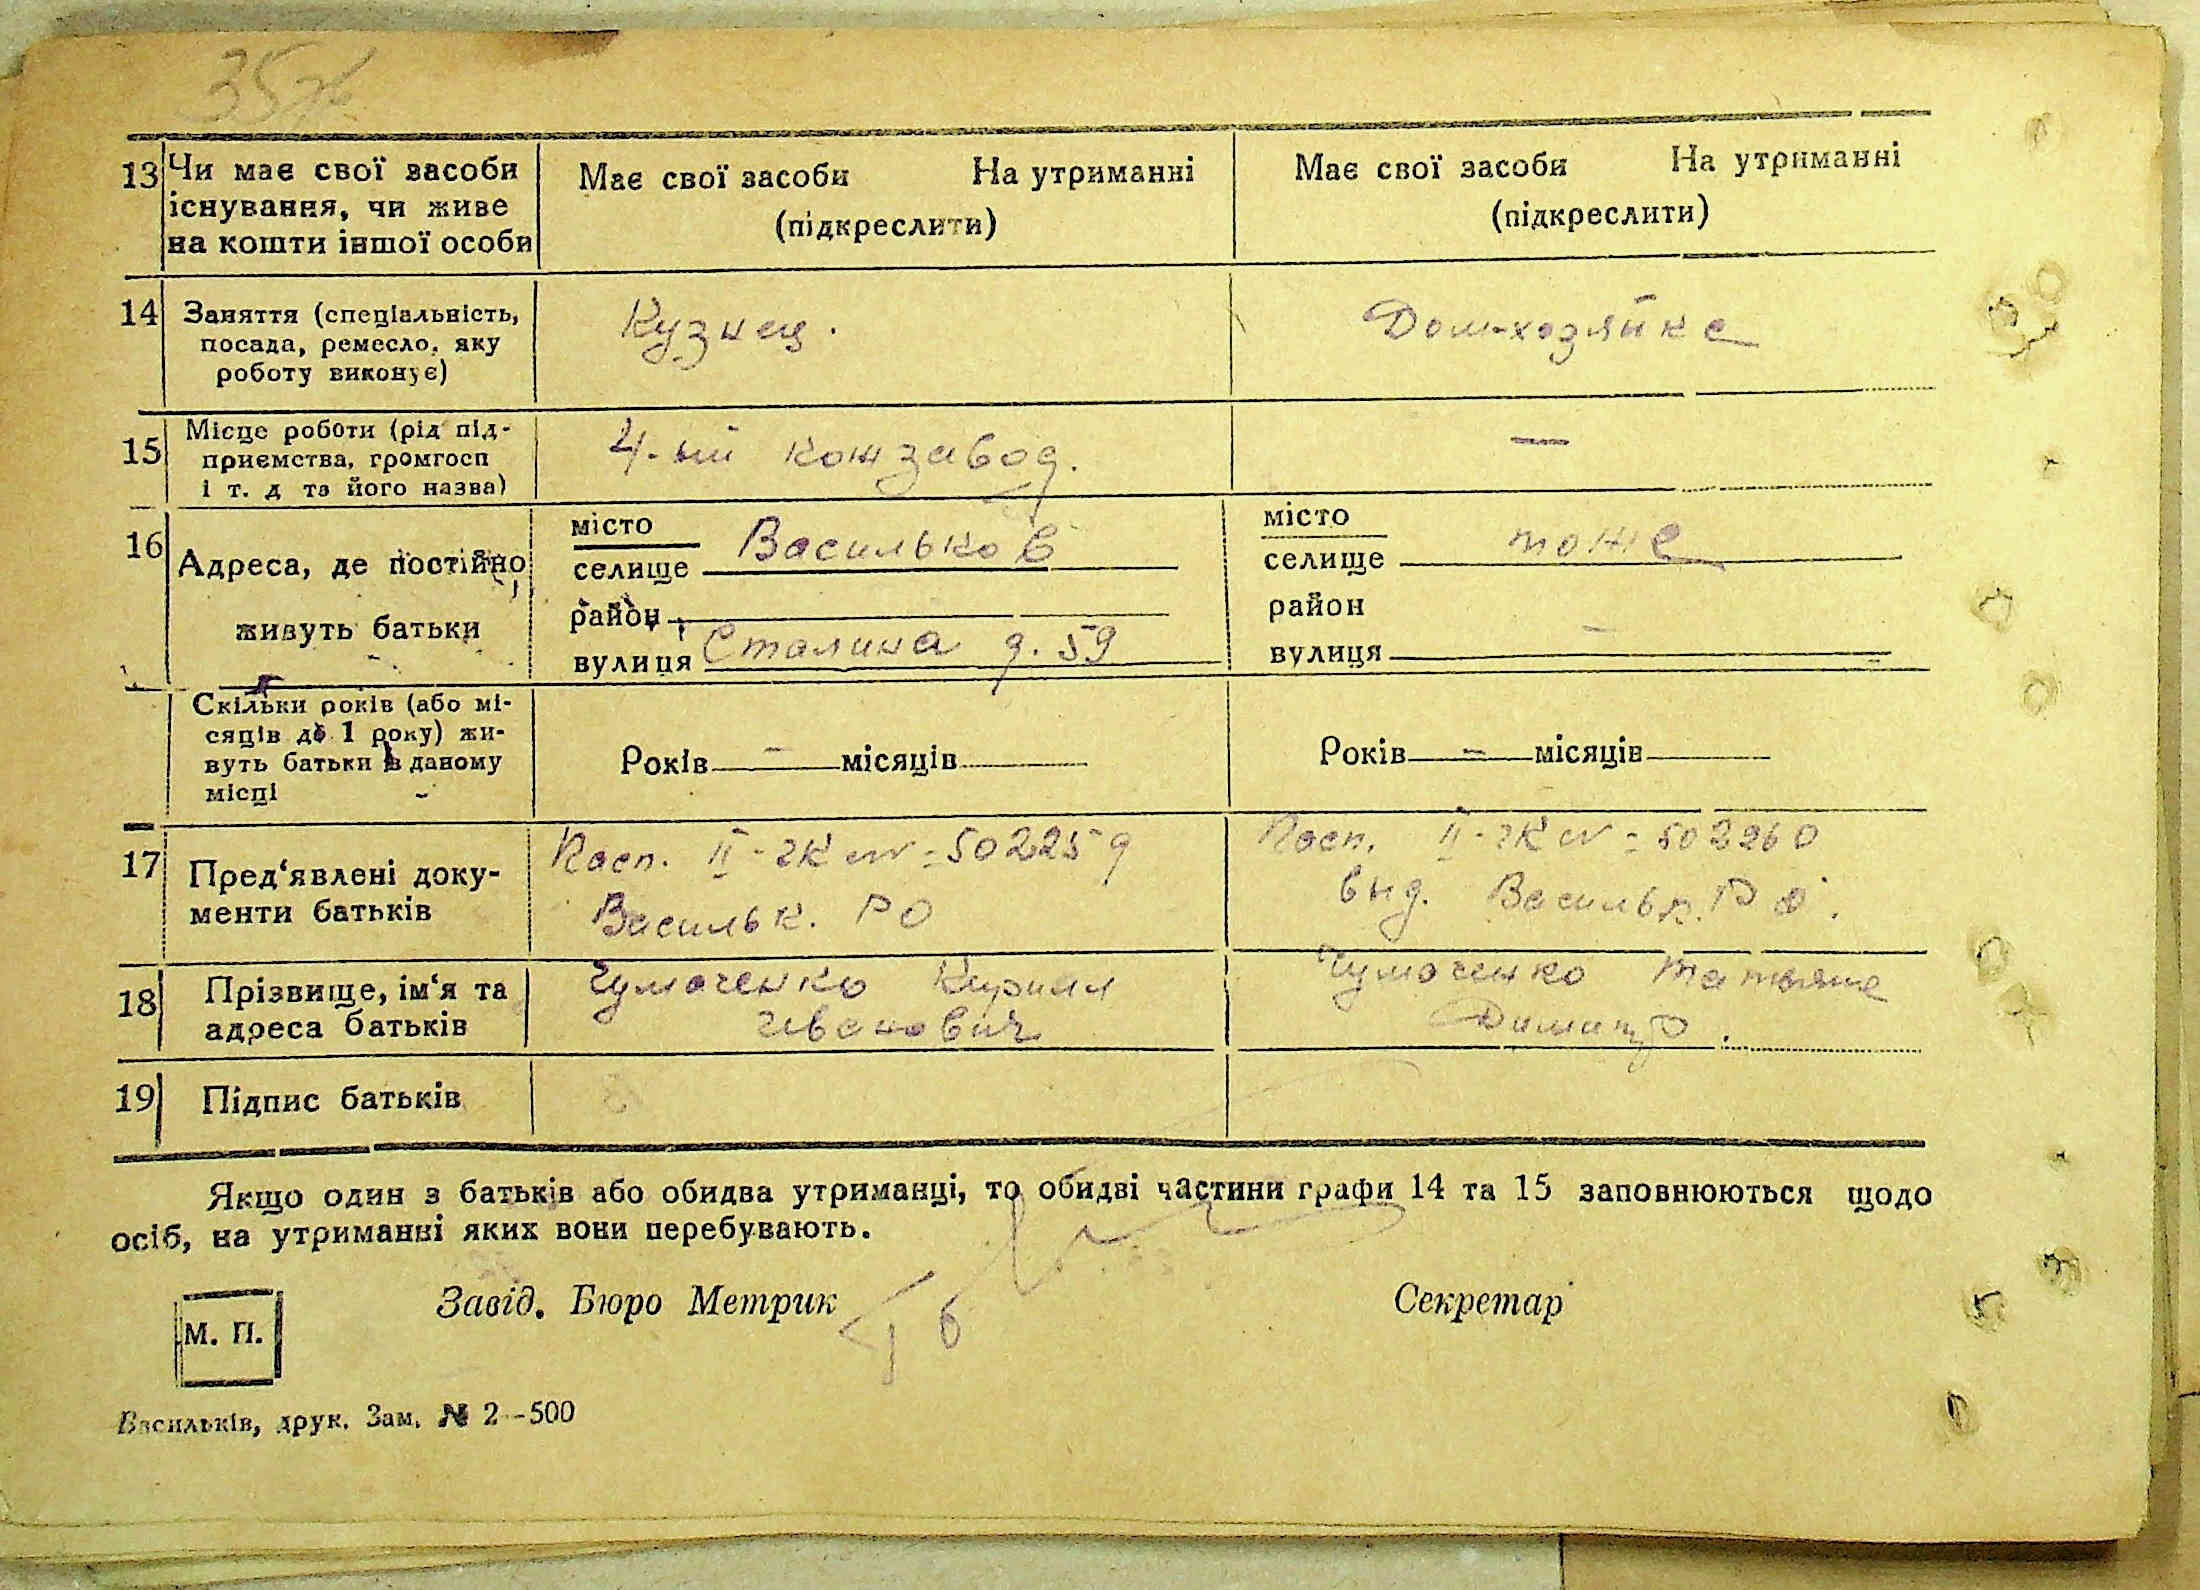 13 Чи має свої засоби існування, чи живе на кошти іншої особи
Має свої засоби На утриманні
(підкреслити)
Має свої засоби На утриманні
(підкреслити)
14 Заняття (спеціальність, посада, ремесло, яку роботу виконує)
Кузнец.
Дом-хозяйка
15 Місце роботи (рід підприємства, громгосп і т. д та його назва)
4-ый кожзавод.
—
16 Адреса, де постійно живуть батьки
місто
селище Васильков
район
вулиця Сталина д. 59
місто
селище тоже
район
вулиця —
Скільки років (або місяців до 1 року) живуть батьки в даному місці
Років — місяців
Років — місяців
17 Пред'явлені документи батьків
Посп. II-ЧК № 502259
Васильк. РО
Посп. II-ЧК № 502260
выд. Васильк. РО.
18 Прізвище, ім'я та адреса батьків
Чумаченко Кирилл
Иванович
Чумаченко Татьяна
Димитр.
19 Підпис батьків
Якщо один з батьків або обидва утриманці, то обидві частини графи 14 та 15 заповнюються щодо
осіб, на утриманні яких вони перебувають.
М. П.
Завід. Бюро Метрик
Секретар
Васильків, друк. Зам. № 2–500